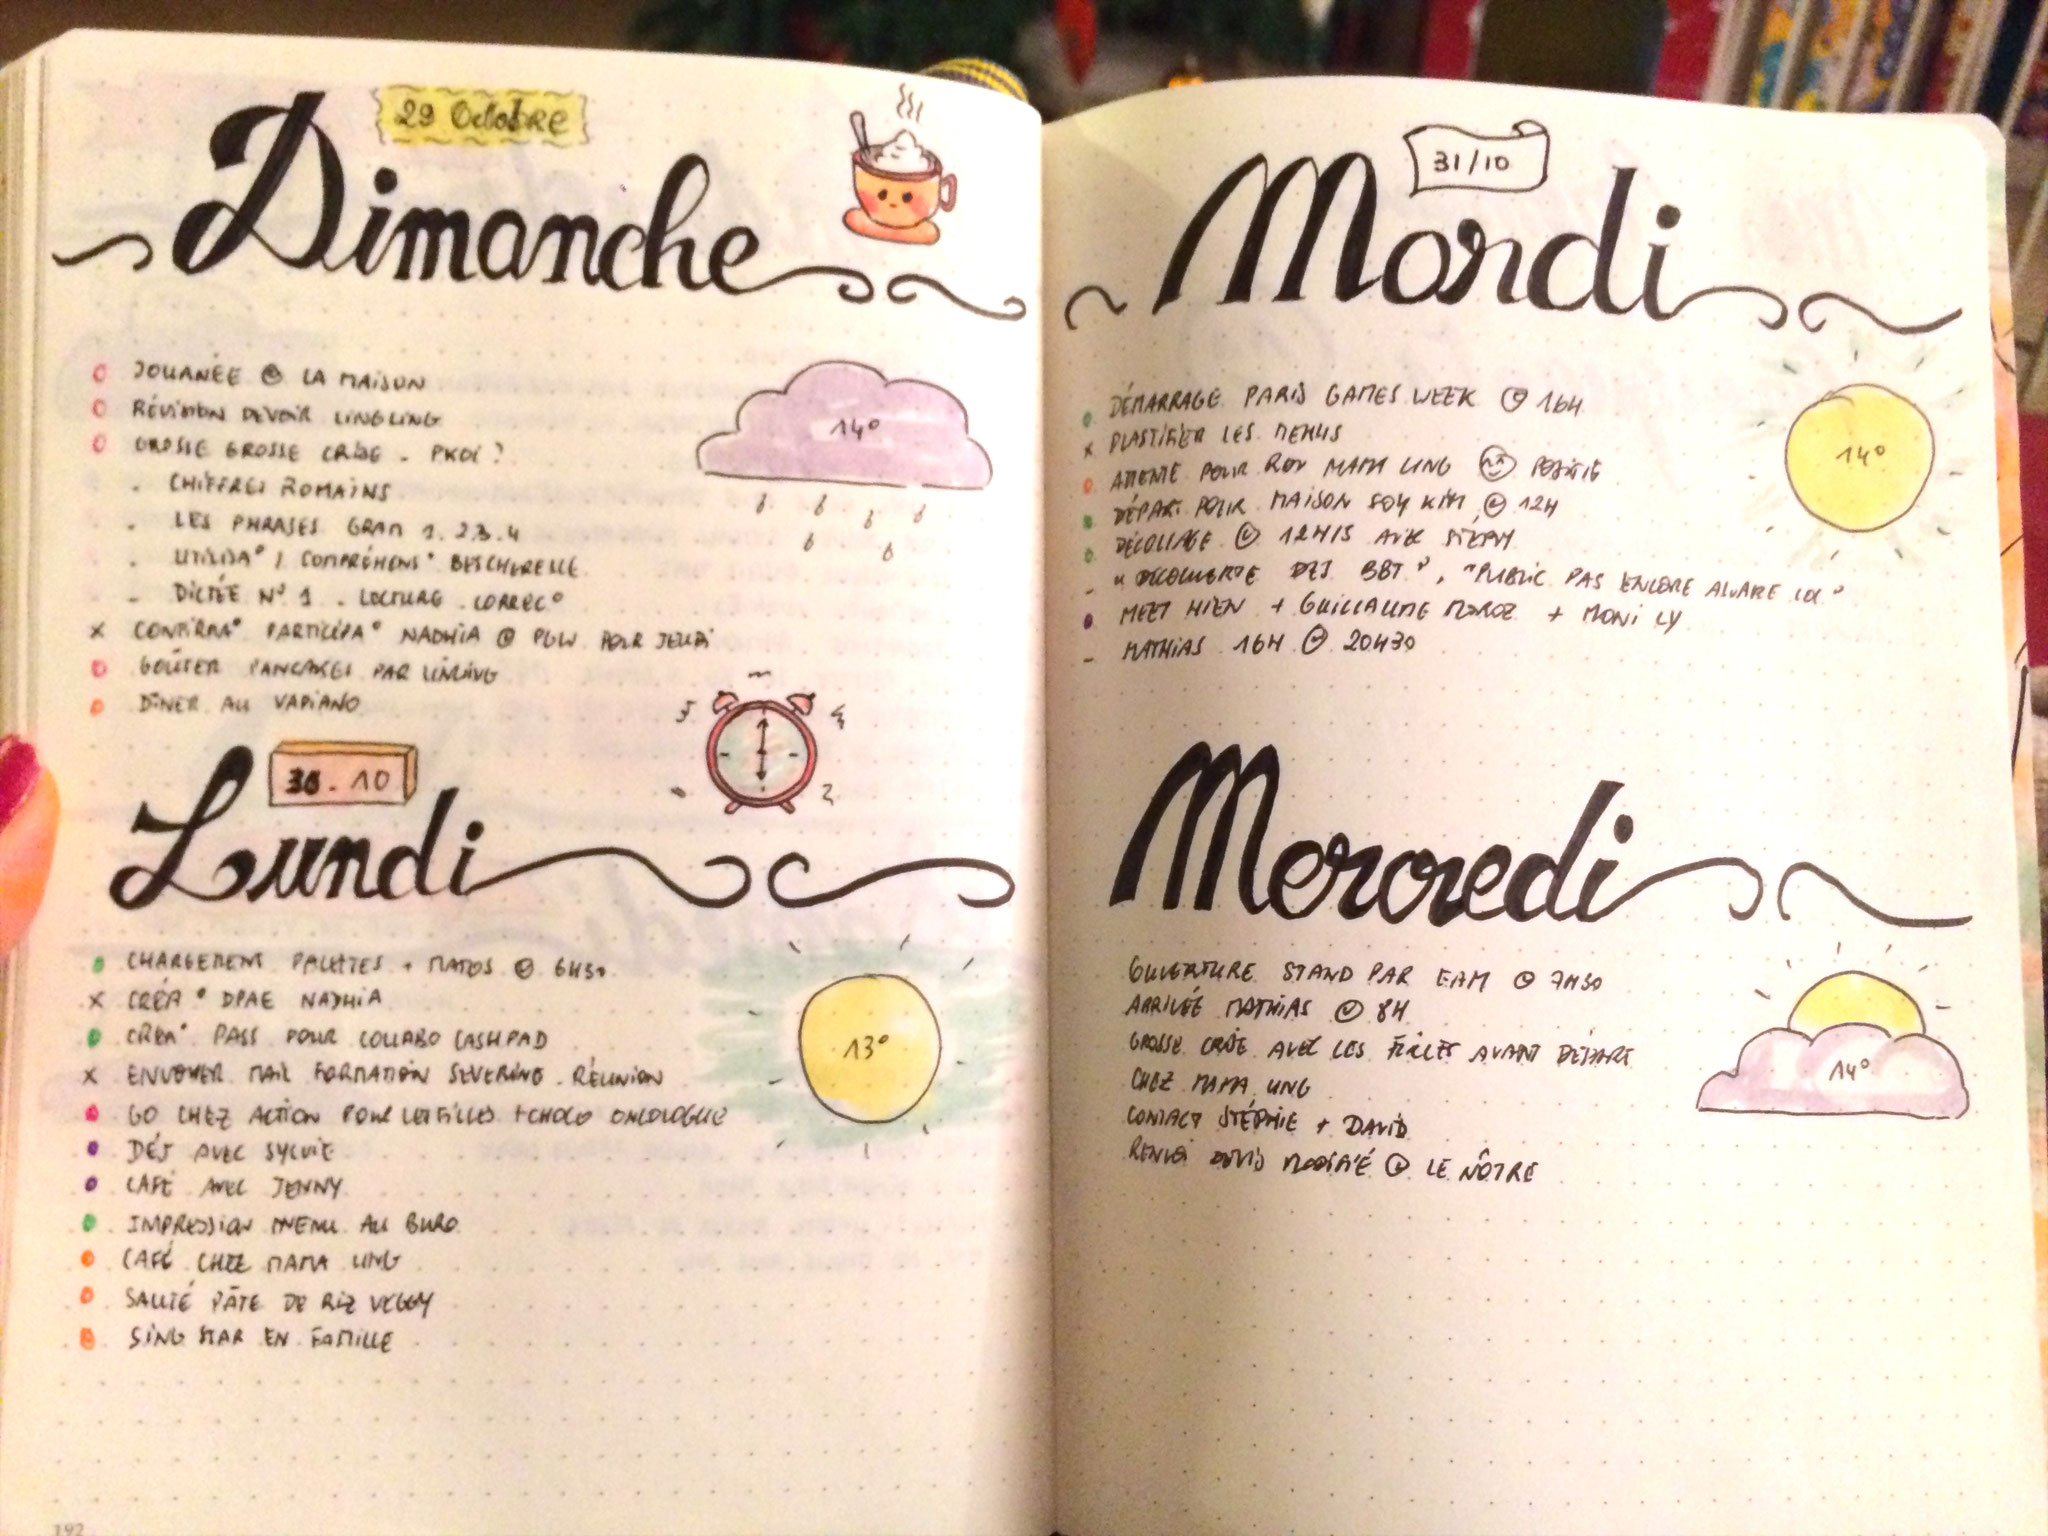 29 Octobre
Dimanche
JOUANÉE @ LA MAISON
RÉVISION DEVOIR LINGLING
GROSSE GROSSE CRISE - PKOI ?
14°
. CHIFFRES ROMAINS
. LES PHRASES GRAM 1.2.3.4
. UTILISA° / COMPRÉHENS° BESCHERELLE
- DICTÉE N° 1 - LECTURE - CORREC°
x CONFIRMA° PARTICIPA° NADHIA @ PGW POUR JEUDI
GOÛTER PANCAKES PAR LINGLING
DINER AU VAPIANO
30.10
Lundi
CHARGEMENT PALETTES + MATOS @ 6H30
x CRÉA° DPAE NADHIA
CRÉA° PASS POUR COLLABO CASHPAD
13°
x ENVOYER MAIL FORMATION SEVERINE - RÉUNION
GO CHEZ ACTION POUR LES FILLES + CHOCO ONCOLOGUE
DÉJ AVEC SYLVIE
CAFÉ AVEC JENNY
IMPRESSION MENU AU BURO
CAFÉ CHEZ MAMA LING
SAUTÉ PÂTE DE RIZ VEGGY
SING STAR EN FAMILLE
192
31/10
Mardi
DÉMARRAGE PARIS GAMES WEEK @ 16H
x PLASTIFIER LES MENUS
ATTENTE POUR RDV MAMA LING POSITIF
14°
DÉPART POUR MAISON SOY KIM @ 12H
DÉCOLLAGE @ 12H15 AVEC STÉPHY
- "DÉCOUVERTE DES BBT", "PUBLIC PAS ENCORE LOL"
MEET HIEN + GUILLAUME MOROZ + MONI LY
- MATHIAS 16H @ 20H30
Mercredi
OUVERTURE STAND PAR @ 7H30
ARRIVÉE MATHIAS @ 8H
GROSSE CRISE AVEC LES FILLES AVANT DÉPART
14°
CHEZ MAMA LING
CONTACT STÉPHIE + DAVID
RENVOI DEVIS MODIFIÉ @ LE NÔTRE